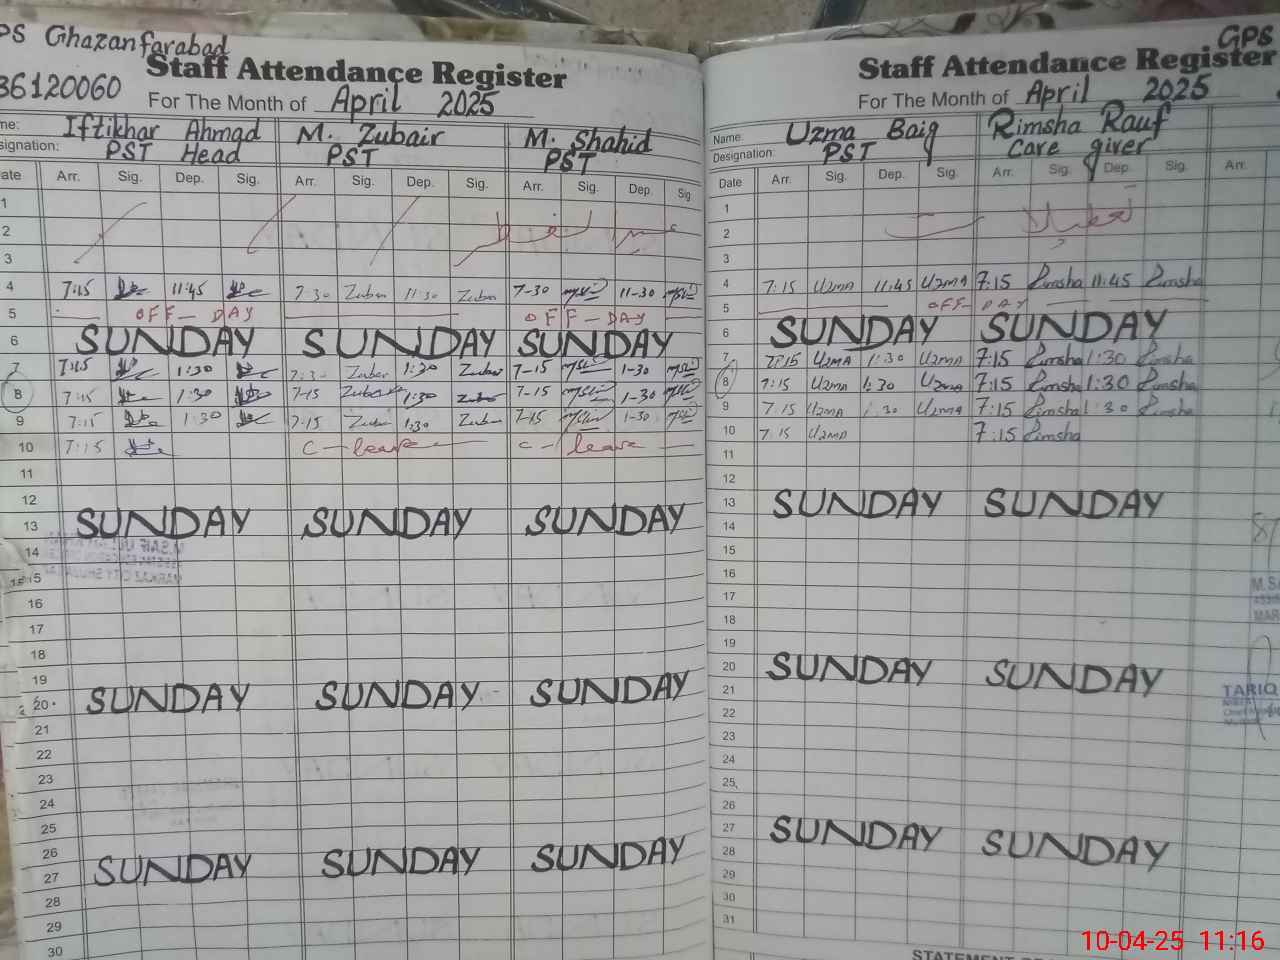 PS Ghazanfarabad
36120060
Staff Attendance Register
For The Month of April 2025
me: Iftikhar Ahmad M. Zubair M. Shahid
signation: PST Head PST PST
ate Arr. Sig. Dep. Sig. Arr. Sig. Dep. Sig. Arr. Sig. Dep. Sig
1
2
3
4 7:15 11:45 7:30 Zubair 11:30 Zubair 7-30 11-30
5 OFF-DAY OFF-DAY
6 SUNDAY SUNDAY SUNDAY
7 7:15 1:30 Zubair 1:30 Zubair 7-15 1-30
8 7:15 1:30 7-15 Zubair 1:30 Zubair 7-15 1-30
9 7:15 1:30 7-15 Zubair 1:30 Zubair 7-15 1-30
10 7:15 C-leave C-leave
11
12
13 SUNDAY SUNDAY SUNDAY
14
15
16
17
18
19
20 SUNDAY SUNDAY SUNDAY
21
22
23
24
25
26
27 SUNDAY SUNDAY SUNDAY
28
29
30
GPS
Staff Attendance Register
For The Month of April 2025
Name: Uzma Baig Rimsha Rauf
Designation: PST Care giver
Date Arr. Sig. Dep. Sig. Arr. Sig. Dep. Sig. Arr.
1
2 تعطیلات
3
4 7:15 UzmA 11:45 UzmA 7:15 Rimsha 11:45 Rimsha
5 OFF-DAY
6 SUNDAY SUNDAY
7 7:15 UzmA 1:30 UzmA 7:15 Rimsha 1:30 Rimsha
8 7:15 UzmA 1:30 UzmA 7:15 Rimsha 1:30 Rimsha
9 7:15 UzmA 1:30 UzmA 7:15 Rimsha 1:30 Rimsha
10 7:15 UzmA 7:15 Rimsha
11
12
13 SUNDAY SUNDAY
14
15
16
17
18
19
20 SUNDAY SUNDAY
21
22
23
24
25
26
27 SUNDAY SUNDAY
28
29
30
31
TARIQ
10-04-25 11:16